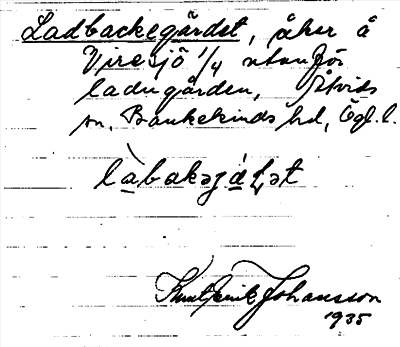 Ladbackegärdet, åker å
Viresjö 1/4 utanför
ladugården, Åtvids
sn, Bankekinds hd, Ögl.
làbakəgáɽət
Knut Erik Johansson
1935